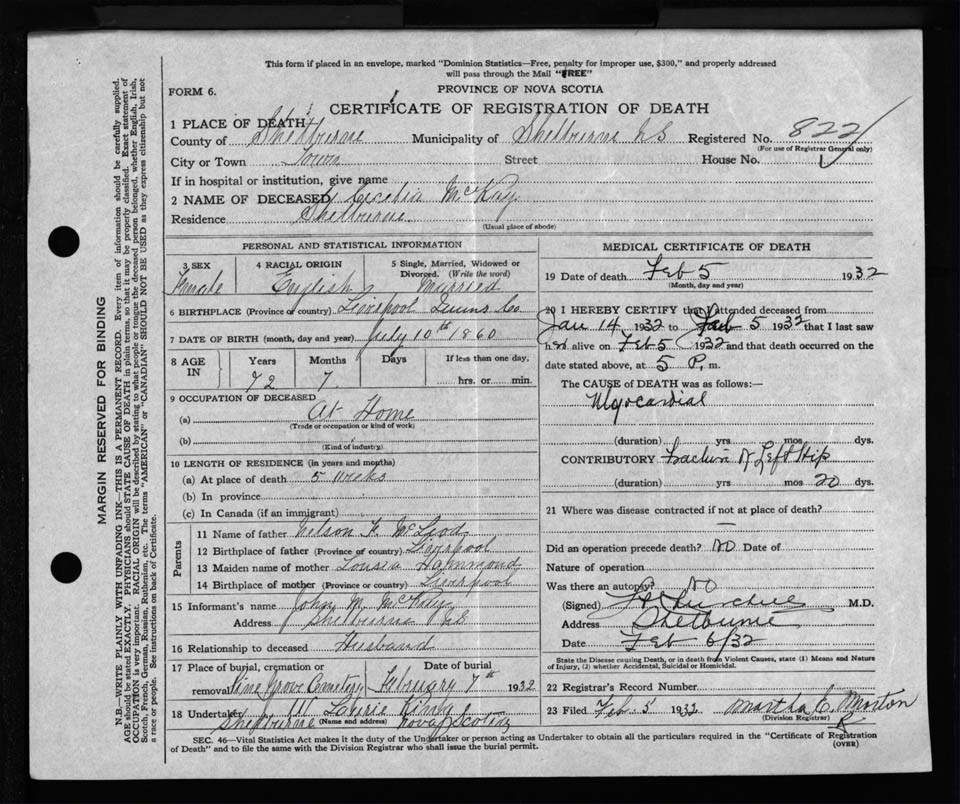 This form if placed in an envelope, marked "Dominion Statistics—Free, penalty for improper use, $300," and properly addressed
will pass through the Mail "FREE"
FORM 6.
PROVINCE OF NOVA SCOTIA
CERTIFICATE OF REGISTRATION OF DEATH
1 PLACE OF DEATH
County of Shelburne Municipality of Shelburne NS Registered No. 822
(For use of Registrar General only)
City or Town Town Street House No.
If in hospital or institution, give name
2 NAME OF DECEASED Cecelia McKay
Residence Shelburne
(Usual place of abode)
PERSONAL AND STATISTICAL INFORMATION
3 SEX 4 RACIAL ORIGIN 5 Single, Married, Widowed or
Divorced. (Write the word)
Female English Married
6 BIRTHPLACE (Province or country) Liverpool Queens Co
7 DATE OF BIRTH (month, day and year) July 10th 1860
8 AGE IN Years Months Days If less than one day,
72 7 hrs. or min.
9 OCCUPATION OF DECEASED
(a) At Home
(Trade or occupation or kind of work)
(b)
(Kind of industry)
10 LENGTH OF RESIDENCE (in years and months)
(a) At place of death 5 weeks
(b) In province
(c) In Canada (if an immigrant)
Parents
11 Name of father Nelson F. McLeod
12 Birthplace of father (Province or country) Liverpool
13 Maiden name of mother Louisa Hammond
14 Birthplace of mother (Province or country) Liverpool
15 Informant's name John M. McKay
Address Shelburne NS
16 Relationship to deceased Husband
17 Place of burial, cremation or Date of burial
removal Pine Grove Cemetery February 7th 1932
18 Undertaker W Laurie
Shelburne (Name and address) Nova Scotia
MEDICAL CERTIFICATE OF DEATH
19 Date of death Feb 5 1932
(Month, day and year)
20 I HEREBY CERTIFY that I attended deceased from
Jan 14 1932 to Feb 5 1932 that I last saw
her alive on Feb 5 1932 and that death occurred on the
date stated above, at 5 P. m.
The CAUSE of DEATH was as follows:—
Myocardial
(duration) yrs mos dys.
CONTRIBUTORY Left Hip
(duration) yrs mos 20 dys.
21 Where was disease contracted if not at place of death?
—
Did an operation precede death? NO Date of
Nature of operation
Was there an autopsy? NO
(Signed) M.D.
Address Shelburne
Date Feb 6/32
State the Disease causing Death, or in death from Violent Causes, state (1) Means and Nature
of Injury, (2) whether Accidental, Suicidal or Homicidal.
22 Registrar's Record Number
23 Filed Feb. 5 1932 Martha C. Morton
(Division Registrar)
SEC. 46—Vital Statistics Act makes it the duty of the Undertaker or person acting as Undertaker to obtain all the particulars required in the "Certificate of Registration
of Death" and to file the same with the Division Registrar who shall issue the burial permit.
(OVER)
MARGIN RESERVED FOR BINDING
N.B.—WRITE PLAINLY WITH UNFADING INK—THIS IS A PERMANENT RECORD. Every item of information should be carefully supplied.
AGE should be stated EXACTLY. PHYSICIANS should STATE CAUSE OF DEATH in plain terms, so that it may be properly classified. Exact statement of
OCCUPATION is very important. RACIAL ORIGIN will be described by stating to what people or tongue the deceased person belonged, whether English, Irish,
Scotch, French, German, Russian, Ruthenian, etc. The terms "AMERICAN" or "CANADIAN" SHOULD NOT BE USED as they express citizenship but not
a race or people. See instructions on back of Certificate.